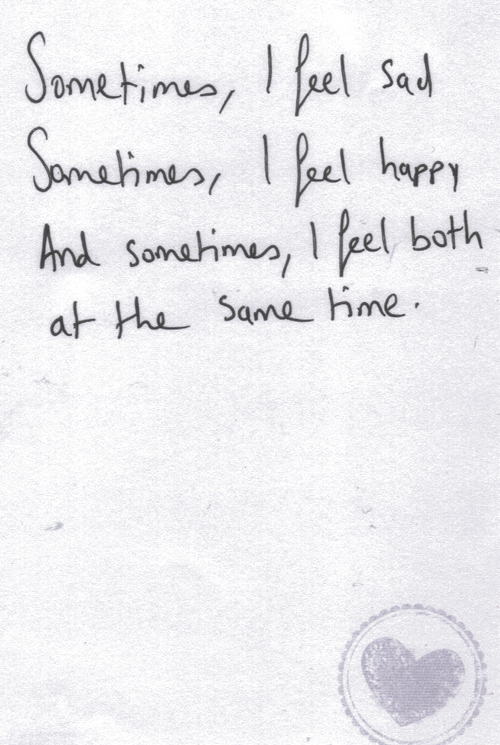 Sometimes, I feel sad
Sometimes, I feel happy
And sometimes, I feel both
at the same time.